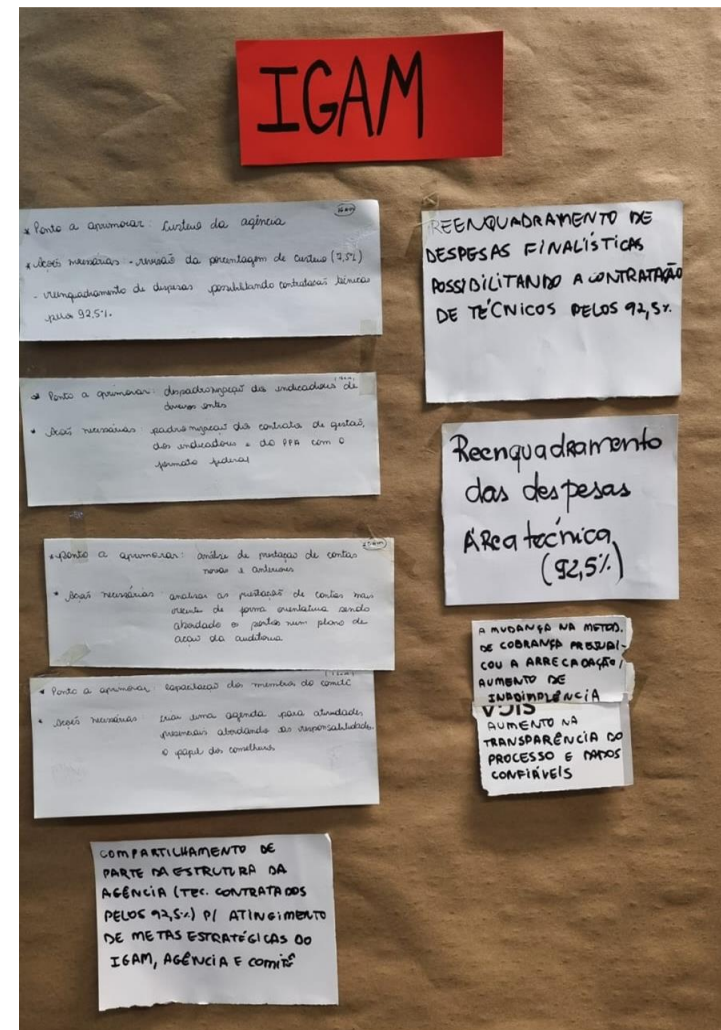 IGAM
* Ponto a aprimorar: Custeio da agência
* Ações necessárias - revisão da porcentagem de custeio (7,5%)
- reenquadramento de despesas possibilitando contratação técnicas
pelos 92,5%.
* Ponto a aprimorar: despadronização dos indicadores de
diversos entes
* Ação necessárias: padronização dos contratos de gestão,
dos indicadores e do PPA com o
formato federal
* Ponto a aprimorar: análise de prestação de contas
novas e anteriores
* Ações necessárias: analisar as prestações de contas mais
recente de forma orientativa sendo
abordado os pontos num plano de
ação da auditoria
* Ponto a aprimorar: capacitação dos membros do comitê
* Ações necessárias: criar uma agenda para atividades
presenciais abordando as responsabilidades
o papel dos conselheiros
COMPARTILHAMENTO DE
PARTE DA ESTRUTURA DA
AGÊNCIA (TEC. CONTRATADOS
PELOS 92,5%) P/ ATINGIMENTO
DE METAS ESTRATÉGICAS DO
IGAM, AGÊNCIA E COMITÊ
REENQUADRAMENTO DE
DESPESAS FINALÍSTICAS
POSSIBILITANDO A CONTRATAÇÃO
DE TÉCNICOS PELOS 92,5%.
Reenquadramento
das despesas
Área técnica
(92,5%)
A MUDANÇA NA METOD.
DE COBRANÇA PREJUDI-
COU A ARRECADAÇÃO/
AUMENTO DE
INADIMPLÊNCIA
AUMENTO NA
TRANSPARÊNCIA DO
PROCESSO E DADOS
CONFIÁVEIS